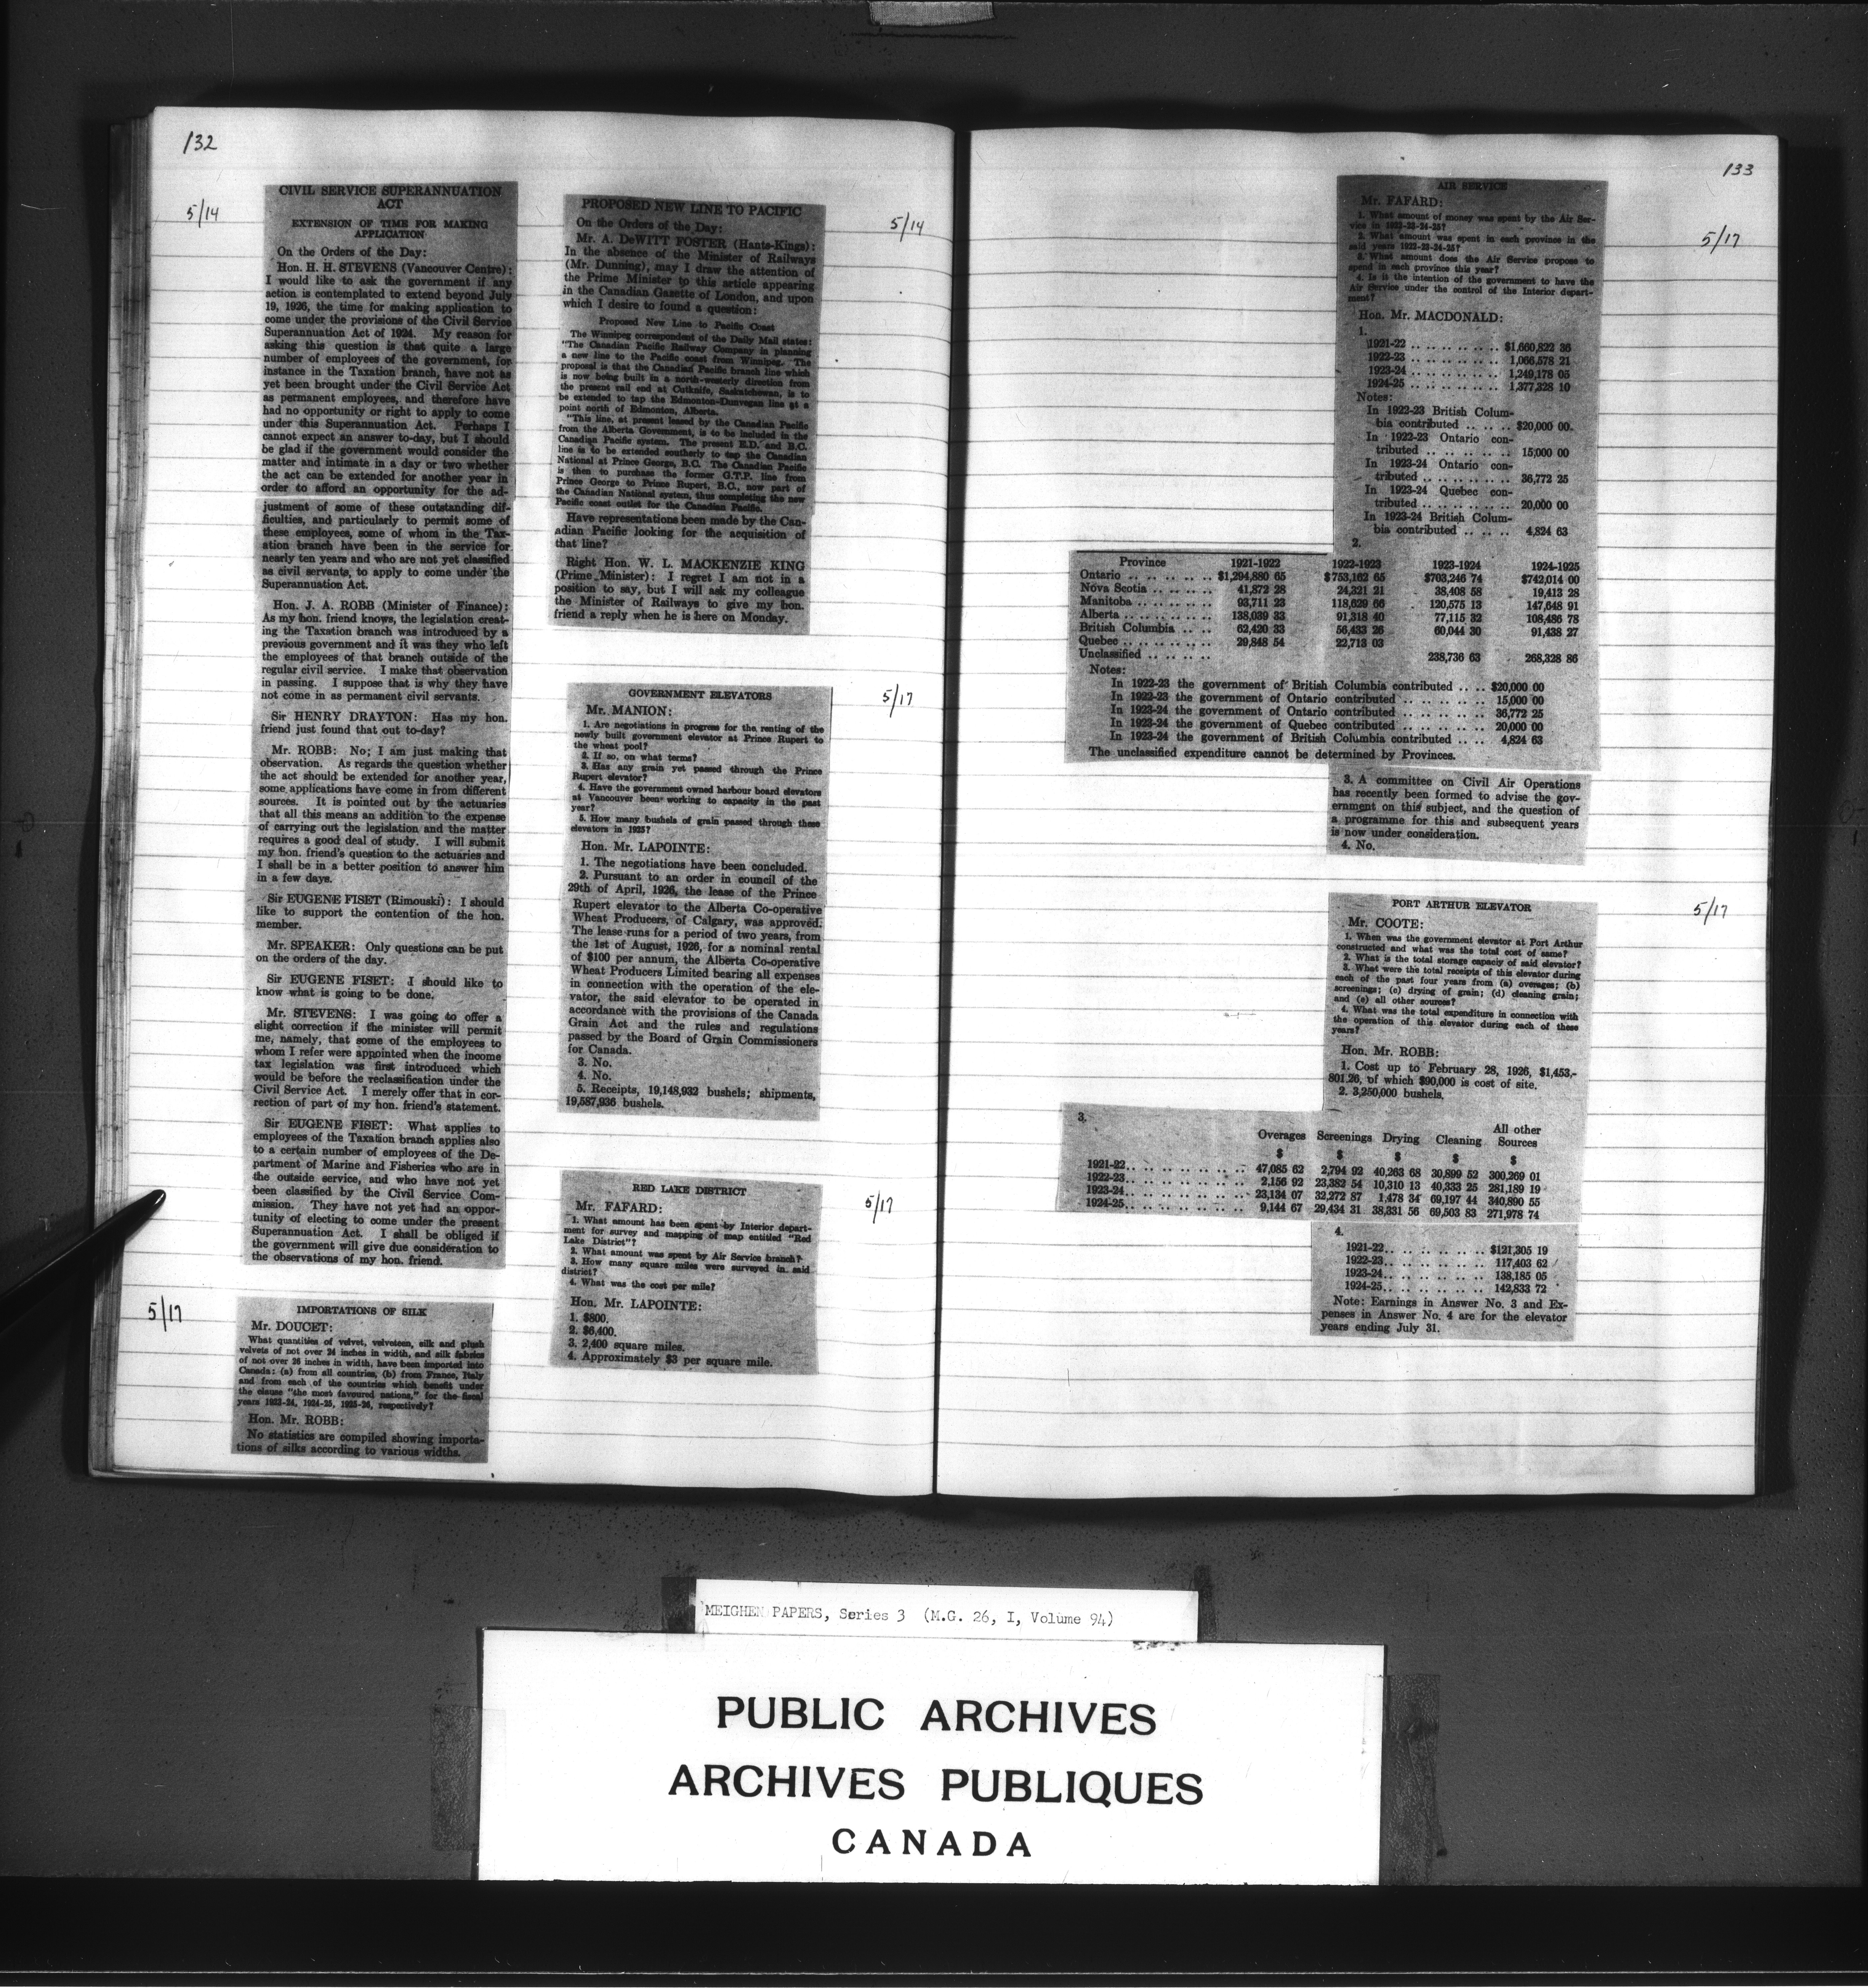 132
5/14
CIVIL SERVICE SUPERANNUATION
ACT
EXTENSION OF TIME FOR MAKING
APPLICATION
On the Orders of the Day:
Hon. H. H. STEVENS (Vancouver Centre):
I would like to ask the government if any
action is contemplated to extend beyond July
19, 1926, the time for making application to
come under the provisions of the Civil Service
Superannuation Act of 1924. My reason for
asking this question is that quite a large
number of employees of the government, for
instance in the Taxation branch, have not as
yet been brought under the Civil Service Act
as permanent employees, and therefore have
had no opportunity or right to apply to come
under this Superannuation Act. Perhaps I
cannot expect an answer to-day, but I should
be glad if the government would consider the
matter and intimate in a day or two whether
the act can be extended for another year in
order to afford an opportunity for the ad-
justment of some of these outstanding dif-
ficulties, and particularly to permit some of
these employees, some of whom in the Tax-
ation branch have been in the service for
nearly ten years and who are not yet classified
as civil servants, to apply to come under the
Superannuation Act.
Hon. J. A. ROBB (Minister of Finance):
As my hon. friend knows, the legislation creat-
ing the Taxation branch was introduced by a
previous government and it was they who left
the employees of that branch outside of the
regular civil service. I make that observation
in passing. I suppose that is why they have
not come in as permanent civil servants.
Sir HENRY DRAYTON: Has my hon.
friend just found that out to-day?
Mr. ROBB: No; I am just making that
observation. As regards the question whether
the act should be extended for another year,
some applications have come in from different
sources. It is pointed out by the actuaries
that all this means an addition to the expense
of carrying out the legislation and the matter
requires a good deal of study. I will submit
my hon. friend's question to the actuaries and
I shall be in a better position to answer him
in a few days.
Sir EUGENE FISET (Rimouski): I should
like to support the contention of the hon.
member.
Mr. SPEAKER: Only questions can be put
on the orders of the day.
Sir EUGENE FISET: I should like to
know what is going to be done.
Mr. STEVENS: I was going to offer a
slight correction if the minister will permit
me, namely, that some of the employees to
whom I refer were appointed when the income
tax legislation was first introduced which
would be before the reclassification under the
Civil Service Act. I merely offer that in cor-
rection of part of my hon. friend's statement.
Sir EUGENE FISET: What applies to
employees of the Taxation branch applies also
to a certain number of employees of the De-
partment of Marine and Fisheries who are in
the outside service, and who have not yet
been classified by the Civil Service Com-
mission. They have not yet had an oppor-
tunity of electing to come under the present
Superannuation Act. I shall be obliged if
the government will give due consideration to
the observations of my hon. friend.
5/17
IMPORTATIONS OF SILK
Mr. DOUCET:
What quantities of velvet, velveteen, silk and plush
velvets of not over 24 inches in width, and silk fabrics
of not over 26 inches in width, have been imported into
Canada: (a) from all countries, (b) from France, Italy
and from each of the countries which benefit under
the clause "the most favoured nations," for the fiscal
years 1923-24, 1924-25, 1925-26, respectively?
Hon. Mr. ROBB:
No statistics are compiled showing importa-
tions of silks according to various widths.
5/14
PROPOSED NEW LINE TO PACIFIC
On the Orders of the Day:
Mr. A. DeWITT FOSTER (Hants-Kings):
In the absence of the Minister of Railways
(Mr. Dunning), may I draw the attention of
the Prime Minister to this article appearing
in the Canadian Gazette of London, and upon
which I desire to found a question:
Proposed New Line to Pacific Coast
The Winnipeg correspondent of the Daily Mail states:
"The Canadian Pacific Railway Company in planning
a new line to the Pacific coast from Winnipeg. The
proposal is that the Canadian Pacific branch line which
is now being built in a north-westerly direction from
the present rail end at Cutknife, Saskatchewan, is to
be extended to tap the Edmonton-Dunvegan line at a
point north of Edmonton, Alberta.
"This line, at present leased by the Canadian Pacific
from the Alberta Government, is to be included in the
Canadian Pacific system. The present E.D. and B.C.
line is to be extended southerly to tap the Canadian
National at Prince George, B.C. The Canadian Pacific
is then to purchase the former G.T.P. line from
Prince George to Prince Rupert, B.C., now part of
the Canadian National system, thus completing the new
Pacific coast outlet for the Canadian Pacific.
Have representations been made by the Can-
adian Pacific looking for the acquisition of
that line?
Right Hon. W. L. MACKENZIE KING
(Prime Minister): I regret I am not in a
position to say, but I will ask my colleague
the Minister of Railways to give my hon.
friend a reply when he is here on Monday.
5/17
GOVERNMENT ELEVATORS
Mr. MANION:
1. Are negotiations in progress for the renting of the
newly built government elevator at Prince Rupert to
the wheat pool?
2. If so, on what terms?
3. Has any grain yet passed through the Prince
Rupert elevator?
4. Have the government owned harbour board elevators
at Vancouver been working to capacity in the past
year?
5. How many bushels of grain passed through these
elevators in 1925?
Hon. Mr. LAPOINTE:
1. The negotiations have been concluded.
2. Pursuant to an order in council of the
29th of April, 1926, the lease of the Prince
Rupert elevator to the Alberta Co-operative
Wheat Producers, of Calgary, was approved.
The lease runs for a period of two years, from
the 1st of August, 1926, for a nominal rental
of $100 per annum, the Alberta Co-operative
Wheat Producers Limited bearing all expenses
in connection with the operation of the ele-
vator, the said elevator to be operated in
accordance with the provisions of the Canada
Grain Act and the rules and regulations
passed by the Board of Grain Commissioners
for Canada.
3. No.
4. No.
5. Receipts, 19,148,932 bushels; shipments,
19,587,936 bushels.
5/17
RED LAKE DISTRICT
Mr. FAFARD:
1. What amount has been spent by Interior depart-
ment for survey and mapping of map entitled "Red
Lake District"?
2. What amount was spent by Air Service branch?
3. How many square miles were surveyed in said
district?
4. What was the cost per mile?
Hon. Mr. LAPOINTE:
1. $800.
2. $6,400.
3. 2,400 square miles.
4. Approximately $3 per square mile.
133
5/17
AIR SERVICE
Mr. FAFARD:
1. What amount of money was spent by the Air Ser-
vice in 1922-23-24-25?
2. What amount was spent in each province in the
said years 1922-23-24-25?
3. What amount does the Air Service propose to
spend in each province this year?
4. Is it the intention of the government to have the
Air Service under the control of the Interior depart-
ment?
Hon. Mr. MACDONALD:
1.
1921-22 .. .. .. .. .. .. $1,660,822 36
1922-23 .. .. .. .. .. .. 1,066,578 21
1923-24 .. .. .. .. .. .. 1,249,178 05
1924-25 .. .. .. .. .. .. 1,377,328 10
Notes:
In 1922-23 British Colum-
bia contributed .. .. .. $20,000 00
In 1922-23 Ontario con-
tributed .. .. .. .. .. 15,000 00
In 1923-24 Ontario con-
tributed .. .. .. .. .. 36,772 25
In 1923-24 Quebec con-
tributed .. .. .. .. .. 20,000 00
In 1923-24 British Colum-
bia contributed .. .. .. 4,824 63
2.
Province 1921-1922 1922-1923 1923-1924 1924-1925
Ontario .. .. .. .. .. $1,294,880 65 $753,162 65 $703,246 74 $742,014 00
Nova Scotia .. .. .. .. 41,872 28 24,321 21 38,408 58 19,413 28
Manitoba .. .. .. .. .. 93,711 23 118,629 66 120,575 13 147,648 91
Alberta .. .. .. .. .. 138,039 33 91,318 40 77,115 32 108,486 78
British Columbia .. .. 62,420 33 56,433 26 60,044 30 91,438 27
Quebec .. .. .. .. .. 29,848 54 22,713 03
Unclassified .. .. .. .. 238,736 63 268,328 86
Notes:
In 1922-23 the government of British Columbia contributed .. .. $20,000 00
In 1922-23 the government of Ontario contributed .. .. .. .. .. 15,000 00
In 1923-24 the government of Ontario contributed .. .. .. .. .. 36,772 25
In 1923-24 the government of Quebec contributed .. .. .. .. .. 20,000 00
In 1923-24 the government of British Columbia contributed .. .. 4,824 63
The unclassified expenditure cannot be determined by Provinces.
3. A committee on Civil Air Operations
has recently been formed to advise the gov-
ernment on this subject, and the question of
a programme for this and subsequent years
is now under consideration.
4. No.
5/17
PORT ARTHUR ELEVATOR
Mr. COOTE:
1. When was the government elevator at Port Arthur
constructed and what was the total cost of same?
2. What is the total storage capacity of said elevator?
3. What were the total receipts of this elevator during
each of the past four years from (a) overages; (b)
screenings; (c) drying of grain; (d) cleaning grain;
and (e) all other sources?
4. What was the total expenditure in connection with
the operation of this elevator during each of these
years?
Hon. Mr. ROBB:
1. Cost up to February 28, 1926, $1,453,-
801.26, of which $90,000 is cost of site.
2. 3,250,000 bushels.
3.
Overages Screenings Drying Cleaning All other Sources
$ $ $ $ $
1921-22.. .. .. .. .. .. 47,085 62 2,794 92 40,263 68 30,899 52 300,269 01
1922-23.. .. .. .. .. .. 2,156 92 23,382 54 10,310 13 40,333 25 281,189 19
1923-24.. .. .. .. .. .. 23,134 07 32,272 87 1,478 34 69,197 44 340,890 55
1924-25.. .. .. .. .. .. 9,144 67 29,434 31 38,331 56 69,503 83 271,978 74
4.
1921-22.. .. .. .. .. .. $121,305 19
1922-23.. .. .. .. .. .. 117,403 62
1923-24.. .. .. .. .. .. 138,185 05
1924-25.. .. .. .. .. .. 142,833 72
Note: Earnings in Answer No. 3 and Ex-
penses in Answer No. 4 are for the elevator
years ending July 31.
MEIGHEN PAPERS, Series 3 (M.G. 26, I, Volume 94)
PUBLIC ARCHIVES
ARCHIVES PUBLIQUES
CANADA